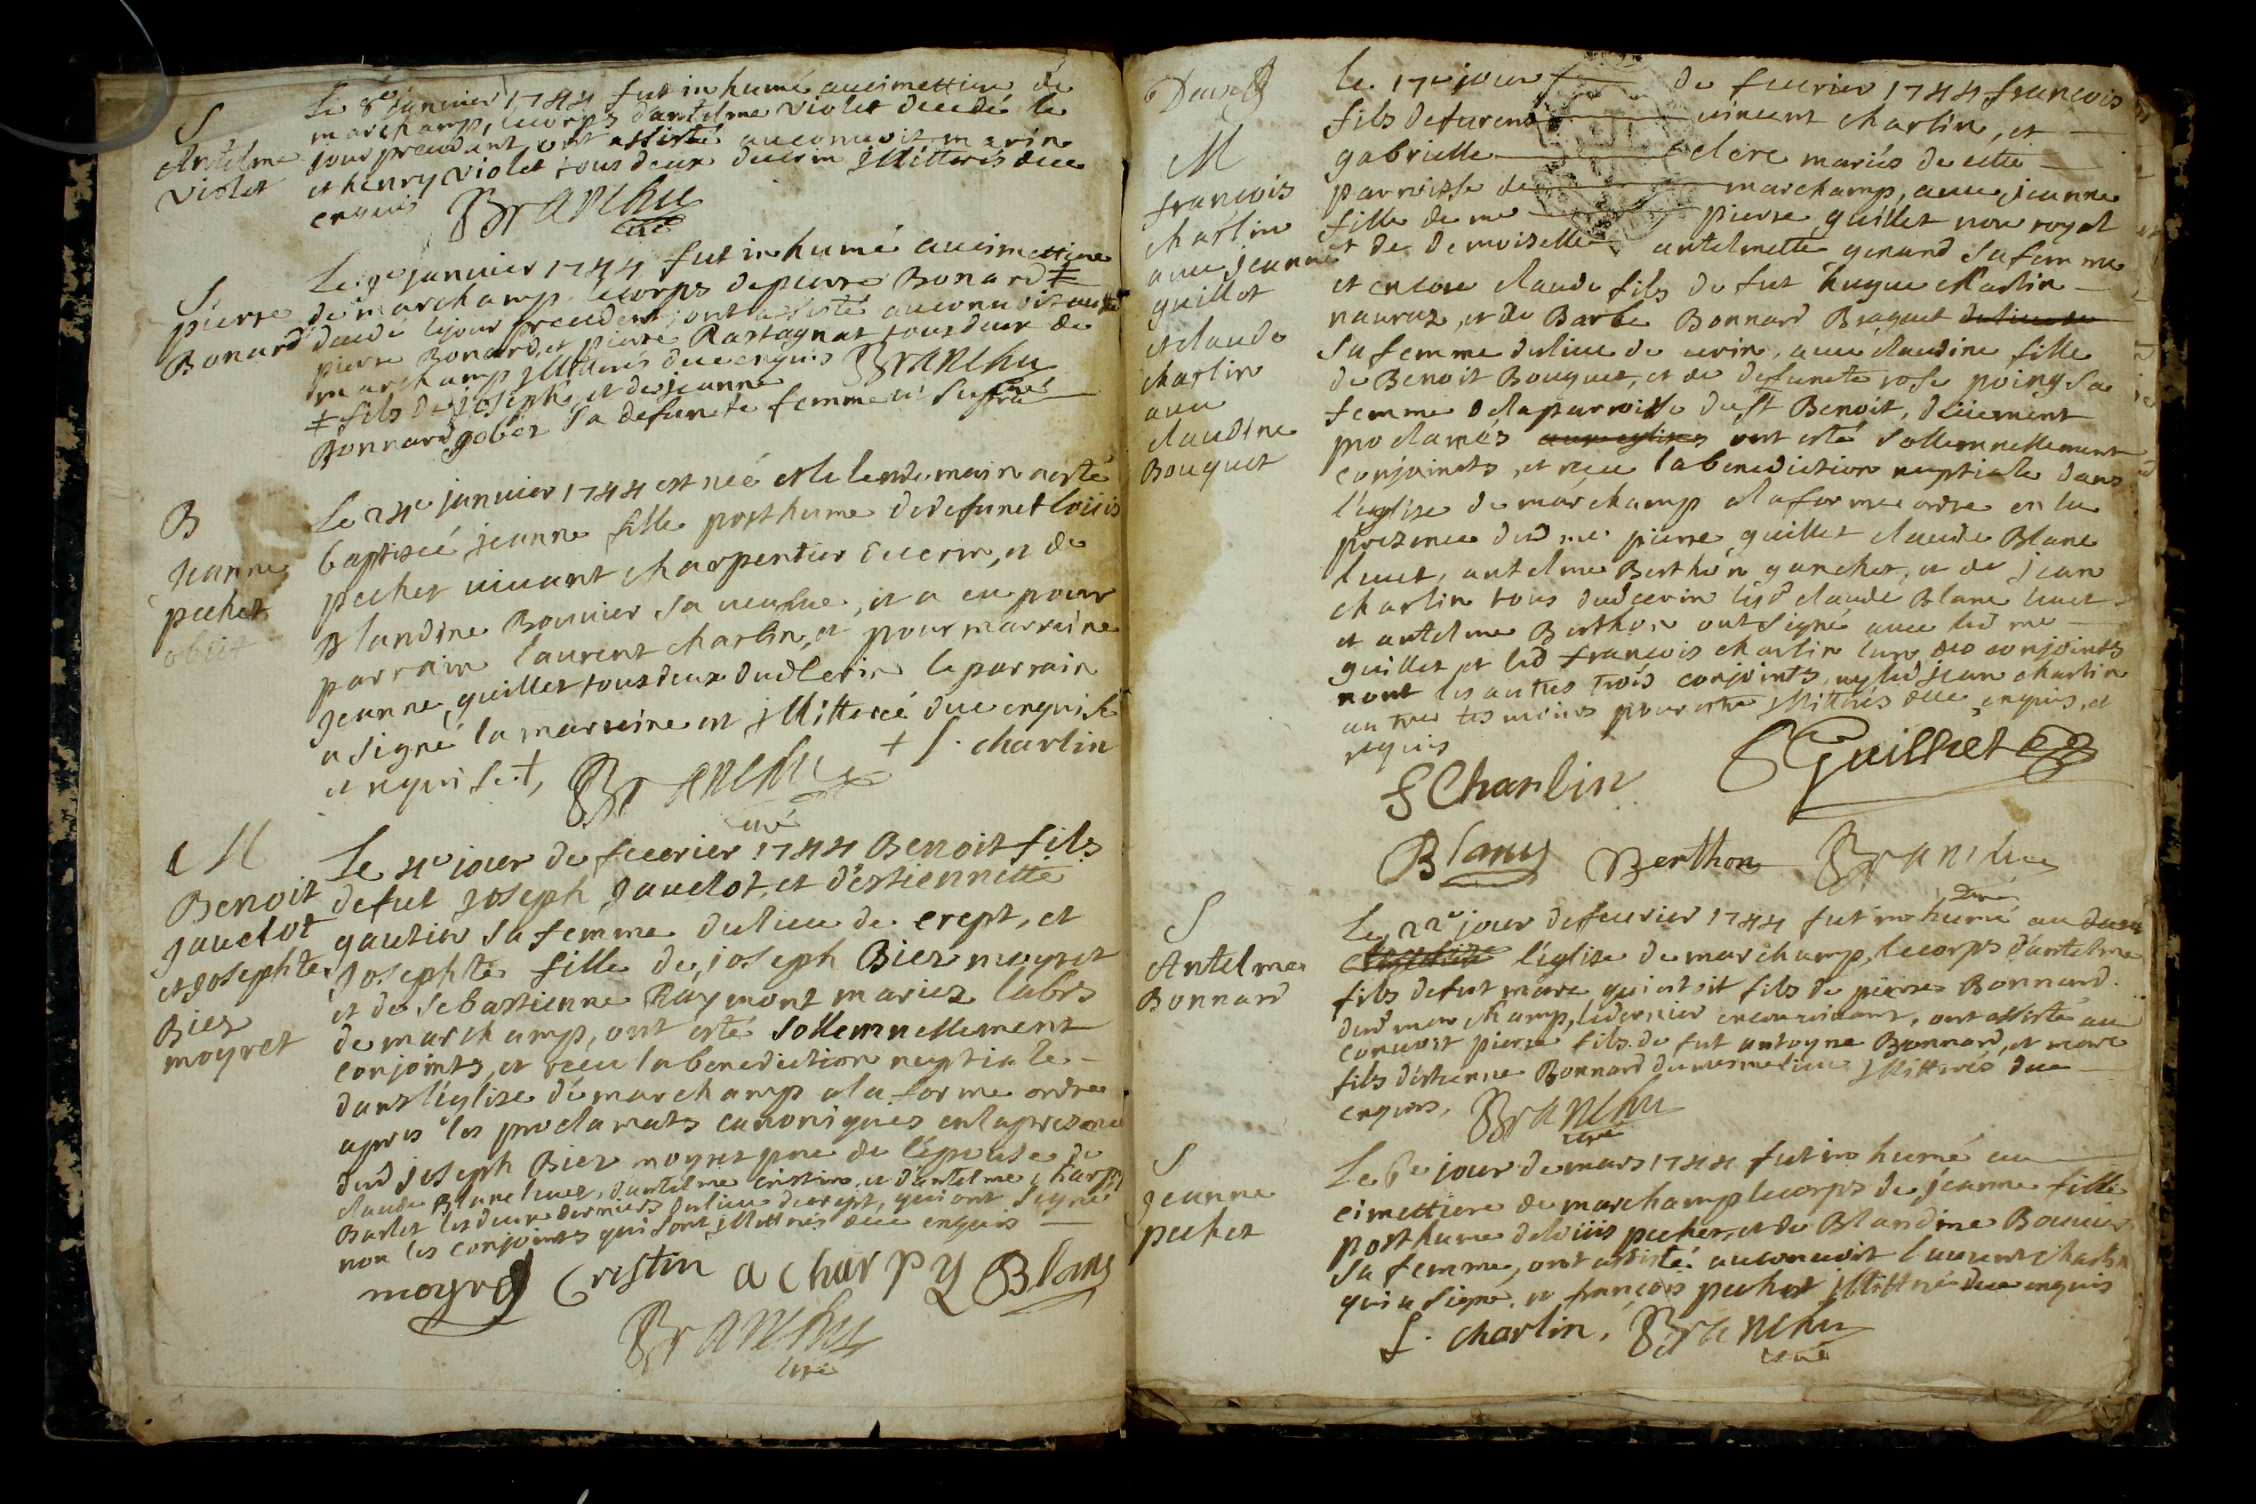 S
Antelme
Violet
Le 8e janvier 1744 fut inhumé au cimettiere de
marchamp, le corps d'antelme Violet decedé le
jour precedant, ont assisté au convoit marin
et henry violet tous deux de cerin illitterés deue
enquis Branchu
curé
S
pierre
Bonard
Le 9e janvier 1744 fut inhumé au cimettiere
de marchamp le corps de pierre Bonard ‡
decedé le jour precedent; ont assisté au convoit
pierre Bonard, et pierre Rastagnat tous deux de
marchamp illitterés deue enquis Branchu
‡ fils de joseph, et de jeanne curé
Bonnard gobet sa defuncte femme
B
Jeanne
pechet
obiit
Le 24e janvier 1744 est née et le lendemain a esté
baptisée jeanne fille posthume de defunct loüis
pechet vivant charpentier de cerin, et de
Blandine Bouvier sa veufve, et a eu pour
parrain laurent charlin, et pour marraine
Jeanne guillet tous deux dud cerin le parrain
a signé la marraine est illitterée deue enquise
et requise ‡, Branchu + l. charlin
curé
M
Benoit
gauclot
et Josephte
Bier
moyret
Le 4e jour de fevrier 1744 Benoit fils
de fut joseph gauclot, et d'estiennette
gautin sa femme du lieu de crept, et
Josephte fille de joseph Bier moyret
et de Sebastienne Raymont mariez labrs
de marchamp, ont esté sollemnellement
conjoints, et receu la benediction nuptiale
dans l'eglize de marchamp a la forme ordre
apres les proclamats canoniques en la presence
dud joseph Bier moyret pere de l'épouse de
claude Blanc luet, d'antelme cristin, et d'antelme charpy
Barlet les deux derniers du lieu de crept, qui ont signé
non les conjoints qui sont illitterés deue enquis
moyret Cristin a charpy Blanc
Branchu
curé
Deux
M
francois
charlin
avec jeanne
guillet
et claude
charlin
avec
claudine
Bouquet
Le 17e jour de fevrier 1744 francois
fils de furent vincent charlin, et
gabrielle clerc mariés de cette
parroisse de marchamp, avec jeanne
fille de me pierre guillet nore royal
et de demoiselle antelmette genand sa femme
et encore claude fils de fut hugue charlin
nauraz, et de Barbe Bonnard Braquet
sa femme du lieu de cerin, avec claudine fille
de Benoit Bouquet, et de defuncte rose poing sa
femme de la parroisse de st Benoit, deüement
proclamés ont esté sollemnellement
conjoincts, et receu la benediction nuptiale dans
l'eglize de marchamp a la forme ordre en la
prezence dud me pierre guillet claude Blanc
luet, antelme Berthon gancher, et de jean
charlin tous dud cerin lesd claude Blanc luet
et antelme Berthon ont signé avec led me
guillet et led francois charlin l'un des conjoints
nont les autres trois conjoints, ny led jean charlin
autre tesmoins pour estre illitterés deue enquis, et
requis
f Charlin Guilliet
Blanc Berthon Branchu
curé
S
Antelme
Bonnard
Le 22e jour de fevrier 1744 fut inhumé au
l'eglize de marchamp, le corps d'antelme
fils de fut marc qui estoit fils de pierre Bonnard
dud marchamp, le dernier encore vivant, ont assisté au
convoit pierre fils de fut antoyne Bonnard, et marc
fils d'estienne Bonnard du mesme lieu illitterés deue
enquis, Branchu
curé
S
Jeanne
pechet
Le 6e jour de mars 1744 fut inhumé au
cimettiere de marchamp le corps de jeanne fille
posthume de loüis pechet, et de Blandine Bouvier
sa femme, ont assisté au convoit laurent charlin
qui a signé, et françois pechet illitteré deue enquis
l. charlin, Branchu
curé